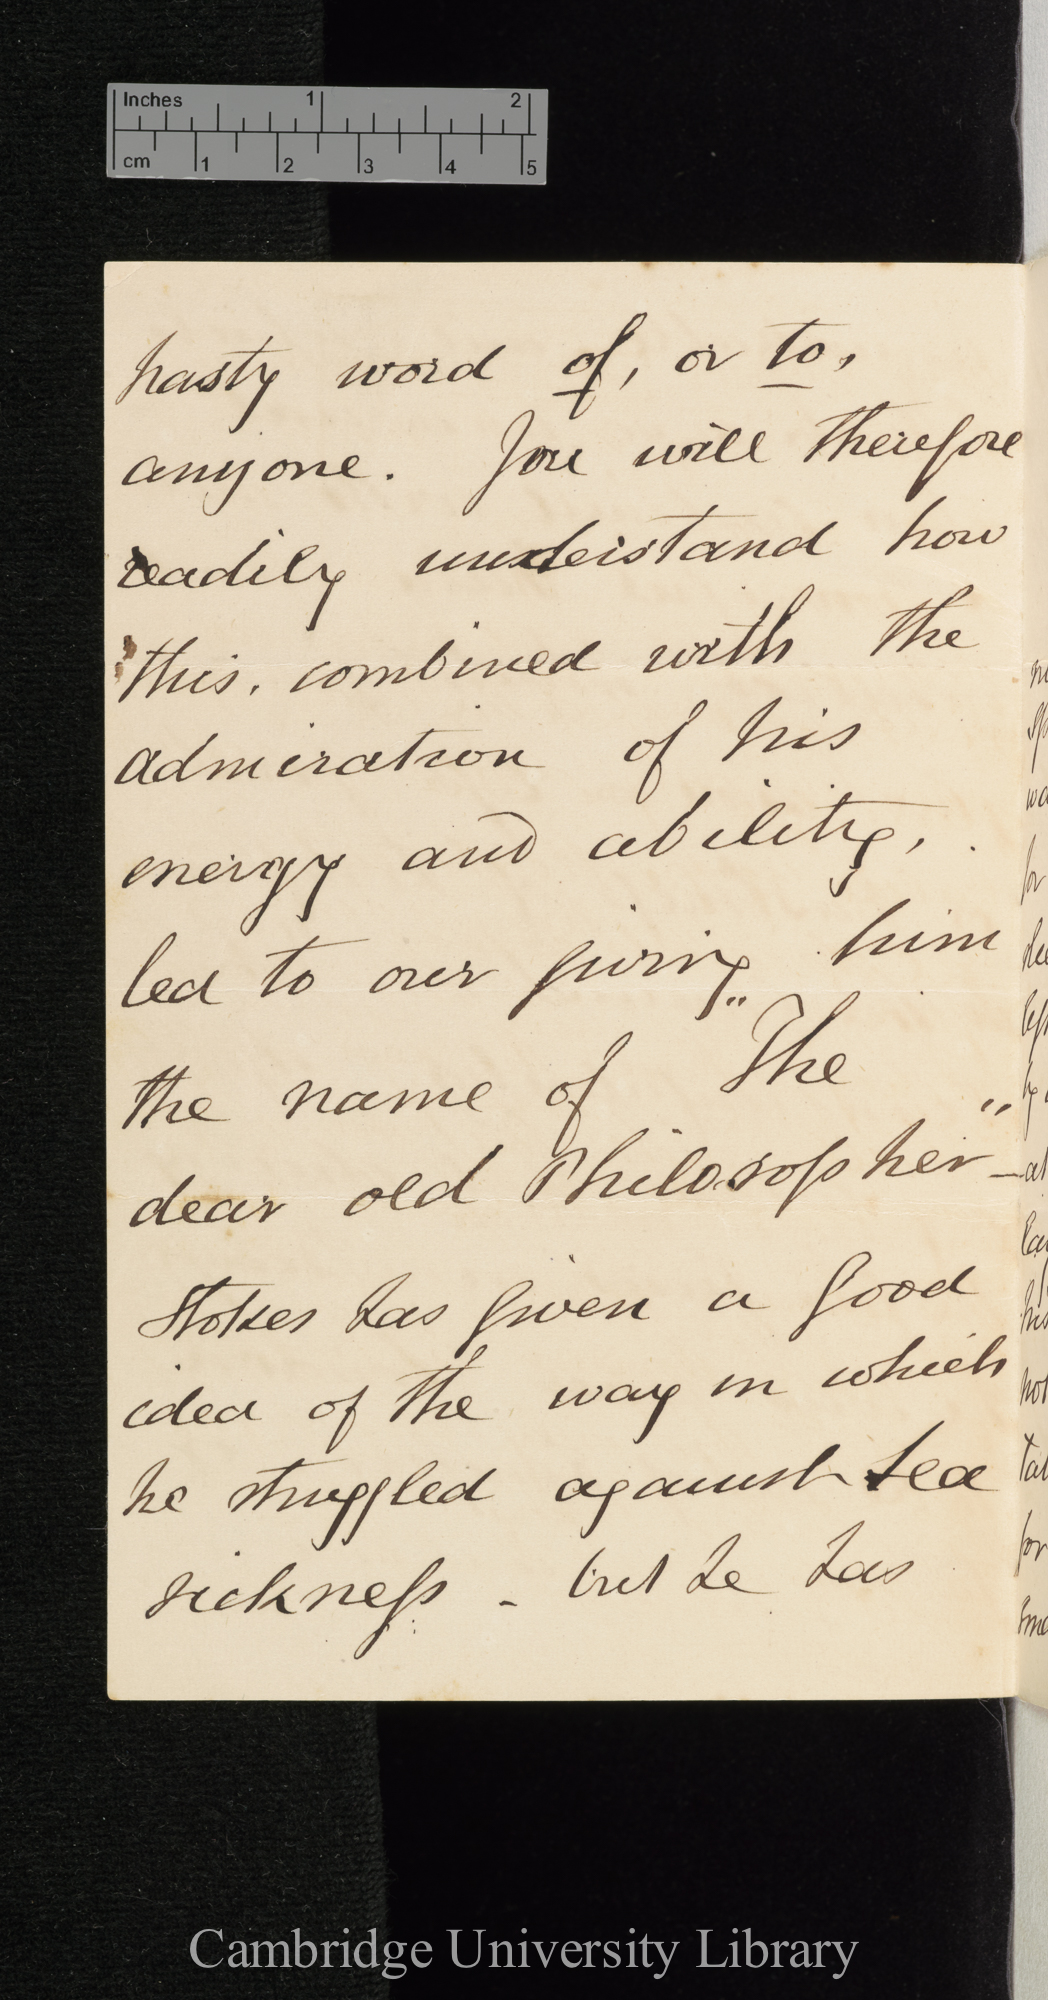 Inches 1 2
cm 1 2 3 4 5
hasty word of, or to,
anyone. You will therefore
readily understand how
this, combined with the
admiration of his
energy and ability,
led to our giving him
the name of "The
dear old Philosopher" –
Stokes has given a good
idea of the way in which
he struggled against sea
sickness - but he has
Cambridge University Library